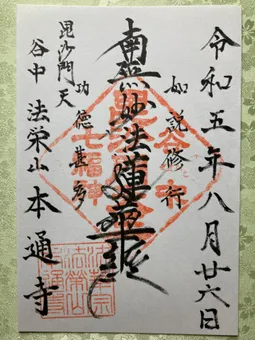 令和五年八月廿六日
如説修行
南無妙法蓮華経
功徳甚多
毘沙門天
谷中 法栄山 本通寺
谷中
七福神
法華宗
法栄山